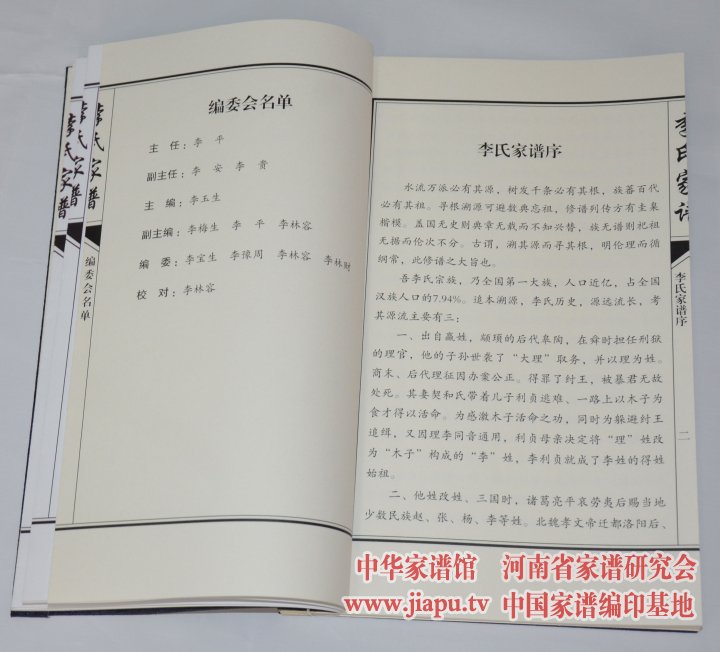 李氏家谱
李氏家谱
李氏家谱
编委会名单
编委会名单
主 任：李 平
副主任：李 安 李 贵
主 编：李玉生
副主编：李梅生 李 平 李林容
编 委：李宝生 李豫周 李林容 李林财
校 对：李林容
李氏家谱序
水流万派必有其源，树发千条必有其根，族蕃百代
必有其祖。寻根溯源可避数典忘祖，修谱列传方有圭臬
楷模。盖国无史则典章无载而不知兴替，族无谱则祀祖
无据而伦次不分。古谓，溯其源而寻其根，明伦理而循
纲常，此修谱之大旨也。
吾李氏宗族，乃全国第一大族，人口近亿，占全国
汉族人口的7.94%。追本溯源，李氏历史，源远流长，考
其源流主要有三：
一、出自嬴姓，颛顼的后代皋陶，在舜时担任刑狱
的理官，他的子孙世袭了“大理”取务，并以理为姓。
商末、后代理征因办案公正。得罪了纣王，被暴君无故
处死。其妻契和氏带着儿子利贞逃难、一路上以木子为
食才得以活命。为感激木子活命之功，同时为躲避纣王
追缉，又因理李同音通用，利贞母亲决定将“理”姓改
为“木子”构成的“李”姓，李利贞就成了李姓的得姓
始祖。
二、他姓改姓、三国时，诸葛亮平哀劳夷后赐当地
少数民族赵、张、杨、李等姓。北魏孝文帝迁都洛阳后、
李氏家谱
李氏家谱序
二
中华家谱馆 河南省家谱研究会
www.jiapu.tv 中国家谱编印基地